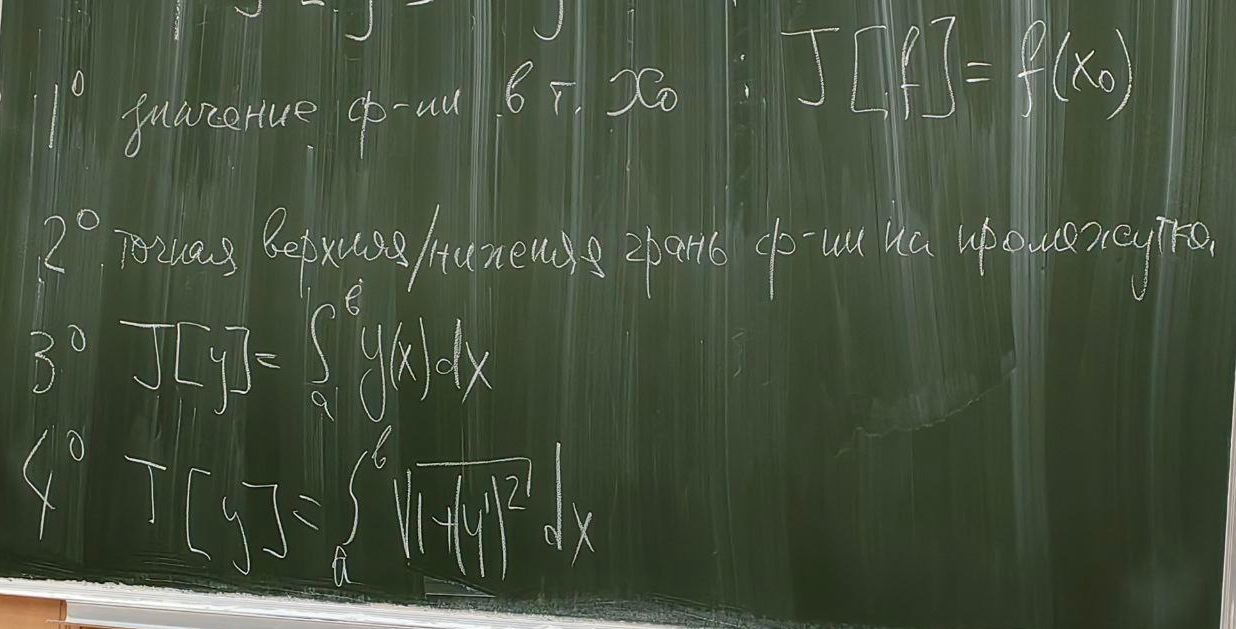 1° значение ф-ии в т. x₀ : J[f] = f(x₀)
2° точная верхняя/нижняя грань ф-ии на промежутке.
3° J[y] = ∫ₐᵇ y(x) dx
4° J[y] = ∫ₐᵇ √(1+(y')²) dx